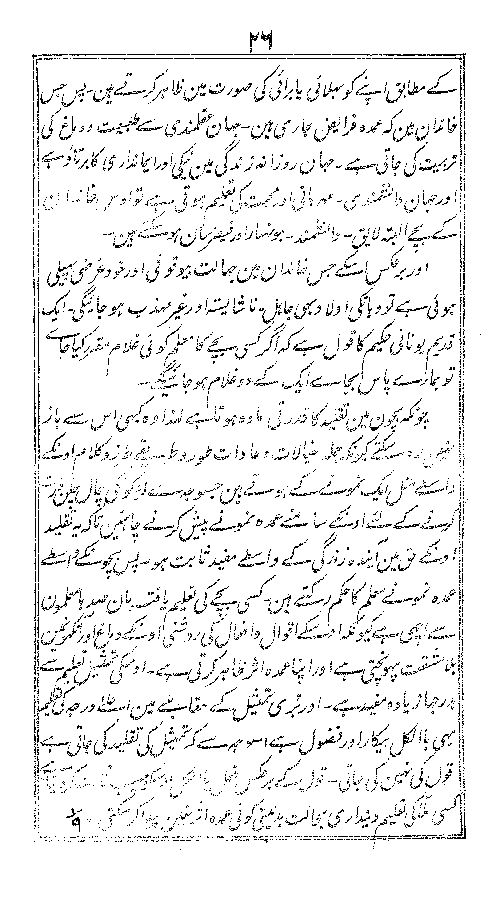 ۲۶
کے مطابق اپنے کو بھلائی یا برائی کی صورت مین ظاہر کرتے ہین۔ پس جس
خاندان مین کہ عمدہ فرایض جاری ہین۔ جہان عقلمندی سے طبیعت و دماغ کی
تربیت کی جاتی ہے۔ جہان روزانہ زندگی مین نیکی اور ایمانداری کا برتاو ہے
اور جہان دانشمندی۔ مہربانی اور محبت کی تعلیم ہوتی ہے تو اوس خاندان
کے بچے البتہ لایق۔ دانشمند۔ ہونہار اور فیضرسان ہونگے ہین۔
اور برعکس اسکے جس خاندان مین جہالت بیوقوفی اور خودغرضی پہیلی
ہوئی ہے تو وہانکی اولاد بہی جاہل۔ ناشایستہ اور غیر مہذب ہو جائیگی۔ ایک
قدیم یونانی حکیم کا قول ہے کہ اگر کسی بچے کا معلم کوئی غلام مقرر کیا جاے
تو بجاے پاس ایک کے دو غلام ہو جائینگے۔
چونکہ بچون مین تقلید کا قدرتی مادہ ہوتا ہے لہذا وہ کبہی اس سے باز
نہین رہ سکتے کیونکہ جملہ خیالات و عادات طور و طریقے طرز و کلام اونکے
واسطے مثل ایک نمونے کے ہوتے ہین جسوجہ سے اونکو
کرنے کے لئے اونکے سامنے عمدہ نمونے پیش کرنے چاہئین تاکہ یہ تقلید
اونکے حق مین آیندہ زندگی کے واسطے مفید ثابت ہو۔ پس بچونکے واسطے
عمدہ نمونے معلم کا حکم رکھتے ہین۔ کسی بچے کی تعلیم یافتہ مان صدہا معلمون
سے اچہی ہے کیونکہ اوسکے اقوال و افعال کی روشنی اونکے دماغ اور
بلا مشقت پہونچتی ہے اور اپنا عمدہ اثر ظاہر کرتی ہے۔ اوسکی تمثیل تعلیم سے
بدرجہا زیادہ مفید ہے۔ اور بری تمثیل کے مقابلے مین اعلے درجہ کی تعلیم
بہی بالکل بیکار اور فضول ہے اسوجہ سے کہ تمثیل کی تقلید کی جاتی ہے
قول کی نہین کی جاتی۔ قول کے برعکس فعل
کسی کی تعلیم دینداری بحالت کوئی عمدہ اثر نہین پیدا کر سکتی۔